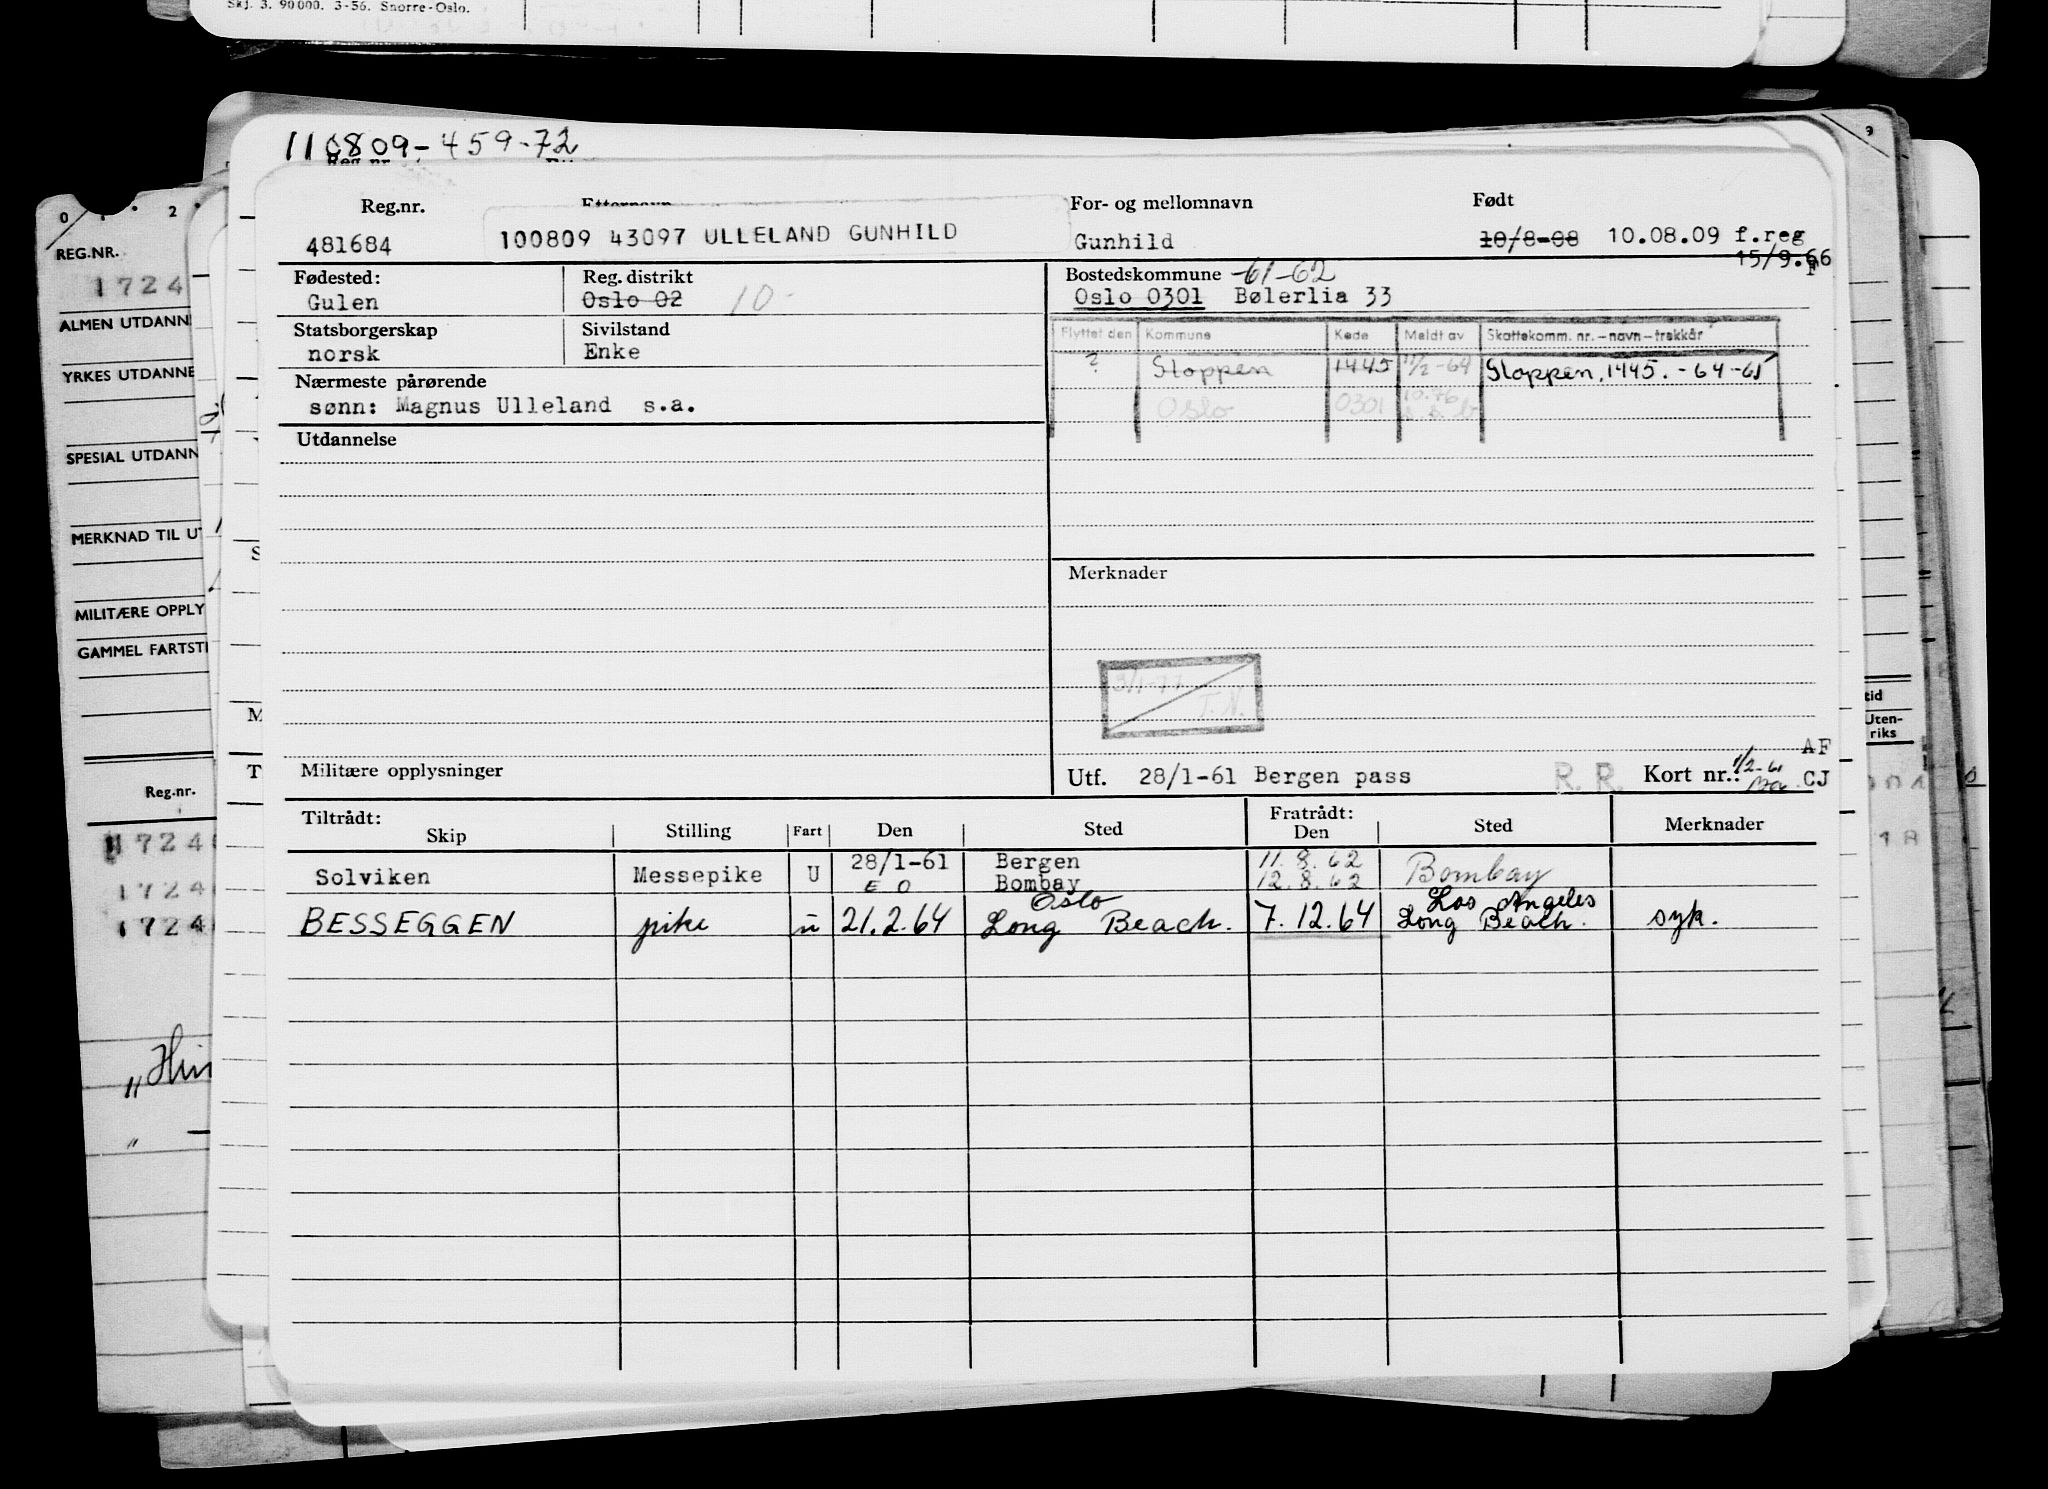 Skj. 3. 90000. 3-56. Snorre-Oslo.
110809-459-72
Reg.nr. Etternavn For- og mellomnavn Født
481684 100809 43097 ULLELAND GUNHILD Gunhild 10/8-08 10.08.09 f.reg
15/9.66
Fødested: Reg. distrikt Bostedskommune -61-62
Gulen Oslo 02 10- Oslo 0301 Bølerlia 33
Statsborgerskap Sivilstand
norsk Enke
Flyttet den Kommune Kode Meldt av Skattekomm. nr.-navn-trekkår
? Gloppen 1445 11/2-64 Gloppen, 1445. -64-65
Oslo 0301
Nærmeste pårørende
sønn: Magnus Ulleland s.a.
Utdannelse
Merknader
3/1-77
T.N.
Militære opplysninger
Utf. 28/1-61 Bergen pass R. R. Kort nr.: 1/2-61
AF
CJ
Tiltrådt: Fratrådt:
Skip Stilling Fart Den Sted Den Sted Merknader
Solviken Messepike U 28/1-61 Bergen 11.8.62 Bombay
E O Bombay 12.8.62
Oslo Los Angeles
BESSEGGEN pike u 21.2.64 Long Beach. 7.12.64 Long Beach. syk.
0 1 2
REG.NR.
1724
ALMEN UTDANN
YRKES UTDANNE
SPESIAL UTDANN
MERKNAD TIL UT
MILITÆRE OPPLY
GAMMEL FARTSTI
Reg.nr.
1724
1724
1724
„Hin
9
tid
Uten-
riks